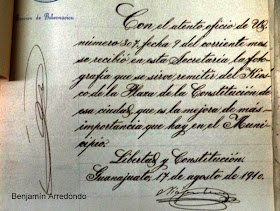 Sección de Gobernación
Con el atento oficio de Ud.
número 307, fecha 9 del corriente mes,
se recibió en esta Secretaría la foto-
grafía que se sirve remitir del Kios-
co de la Plaza de la Constitución de
esa ciudad, que es la mejora de más
importancia que hay en el Muni-
cipio.
Libertad y Constitución.
Guanajuato, 17 de agosto de 1910.
Benjamín Arredondo